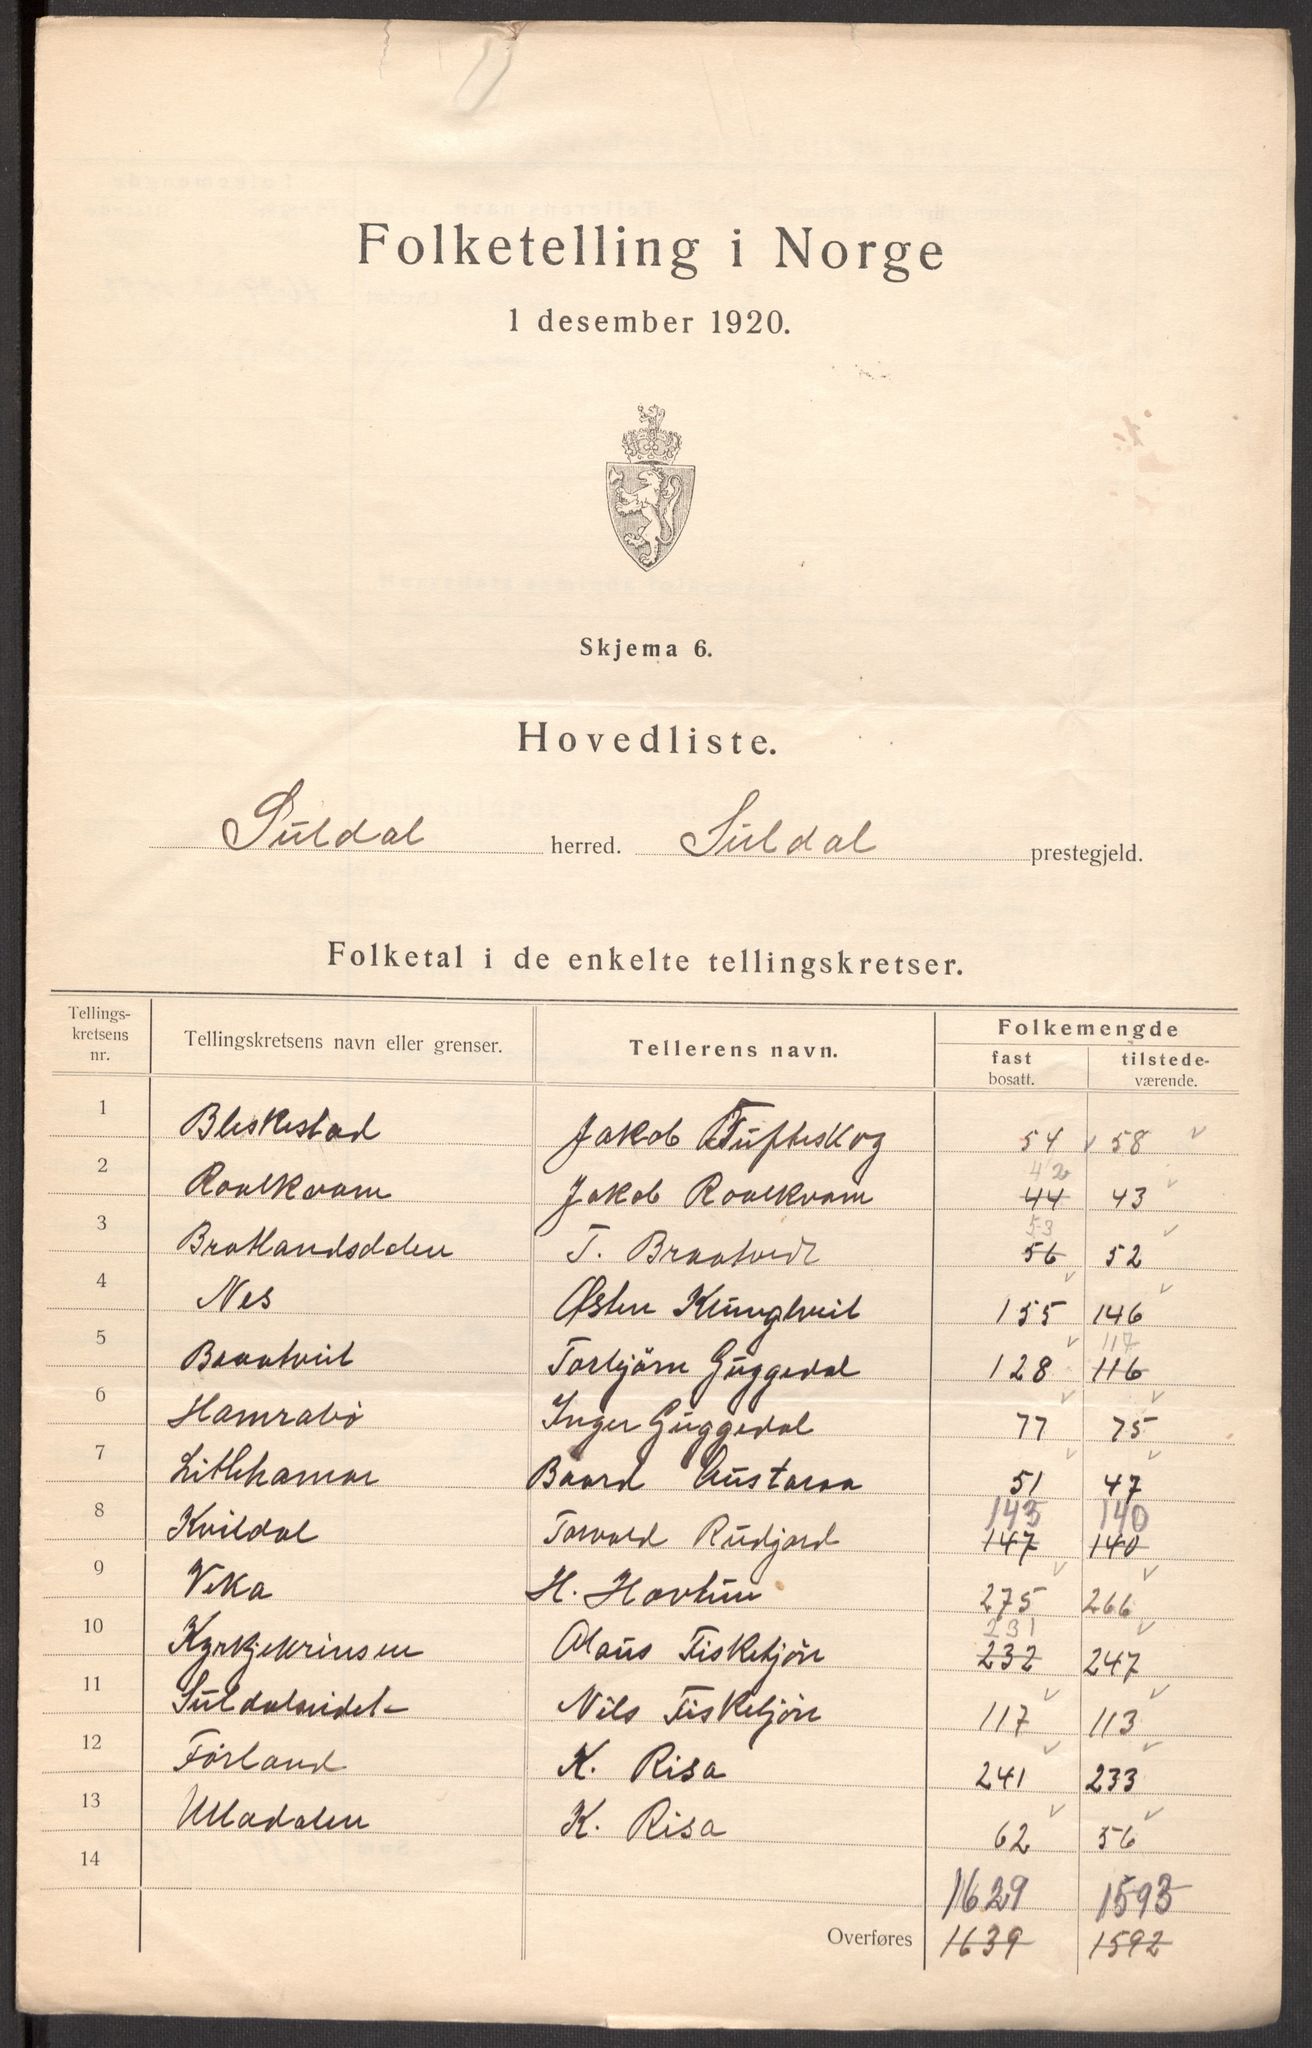 Folketelling i Norge
1 desember 1920.
Skjema 6.
Hovedliste.
Suldal herred. Suldal prestegjeld.
Folketal i de enkelte tellingskretser.
Tellings-
kretsens
nr.
Tellingskretsens navn eller grenser.
Tellerens navn.
Folkemengde
fast
bosatt.
tilstede-
værende.
1 Bleskestad Jakob Tufteskog 54 58
2 Roalkvam Jakob Roalkvam 42 44 43
3 Bratlandsdalen T. Braatveit 53 56 52
4 Nes Østen Klungtveit 155 146
5 Braatveit Torbjörn Guggedal 128 117 116
6 Hamrabö Inger Guggedal 77 75
7 Litlehamar Baard 51 47
8 Kvildal Torvald Rudjord 143 147 140 140
9 Veka H. Havtun 275 266
10 Kyrkjekrinsen Olaus Fisketjön 231 232 247
11 Suldalseidet Nils Fisketjön 117 113
12 Førland K. Risa 241 233
13 Ulladalen K. Risa 62 56
14
1629 1593
Overføres 1639 1592